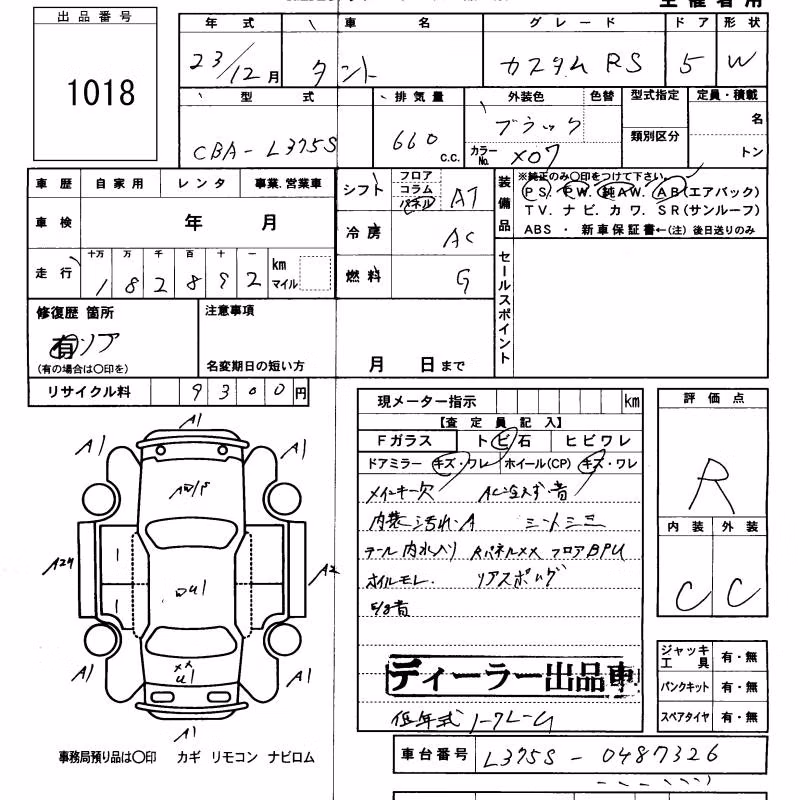 出品番号
1018
年式 車名 グレード ドア 形状
23/12月 タント カスタムRS 5 W
型式 排気量 外装色 色替 型式指定 定員・積載
CBA-L375S 660 c.c. ブラック 類別区分 名
カラーNo. X07 トン
車歴 自家用 レンタ 事業.営業車
車検 年 月
走行 十万 万 千 百 十 一 km マイル
1 8 2 8 9 2
シフト フロア コラム パネル AT
冷房 AC
燃料 G
装備品
※純正のみ〇印をつけて下さい。
PS. PW. 純AW. AB(エアバック)
TV. ナビ. カワ. SR(サンルーフ)
ABS ・ 新車保証書←(注) 後日送りのみ
セールスポイント
修復歴 箇所
有 リア
(有の場合は〇印を)
注意事項
名変期日の短い方 月 日まで
リサイクル料 9300円
現メーター指示 km
【査定員記入】
Fガラス トビ石 ヒビワレ
ドアミラー キズ・ワレ ホイール(CP) キズ・ワレ
メインキー欠
内装ヨゴレ・A
テール内水入り RパネルXX フロアBPU
ホイルモレ.
ディーラー出品車
低年式
評価点
R
内装 外装
C C
ジャッキ工具 有・無
パンクキット 有・無
スペアタイヤ 有・無
車台番号 L375S-0487326
A1
A1
A1
A1
A1
A24
A2
U1
XX
U1
A1
A1
A1
事務局預り品は〇印 カギ リモコン ナビロム